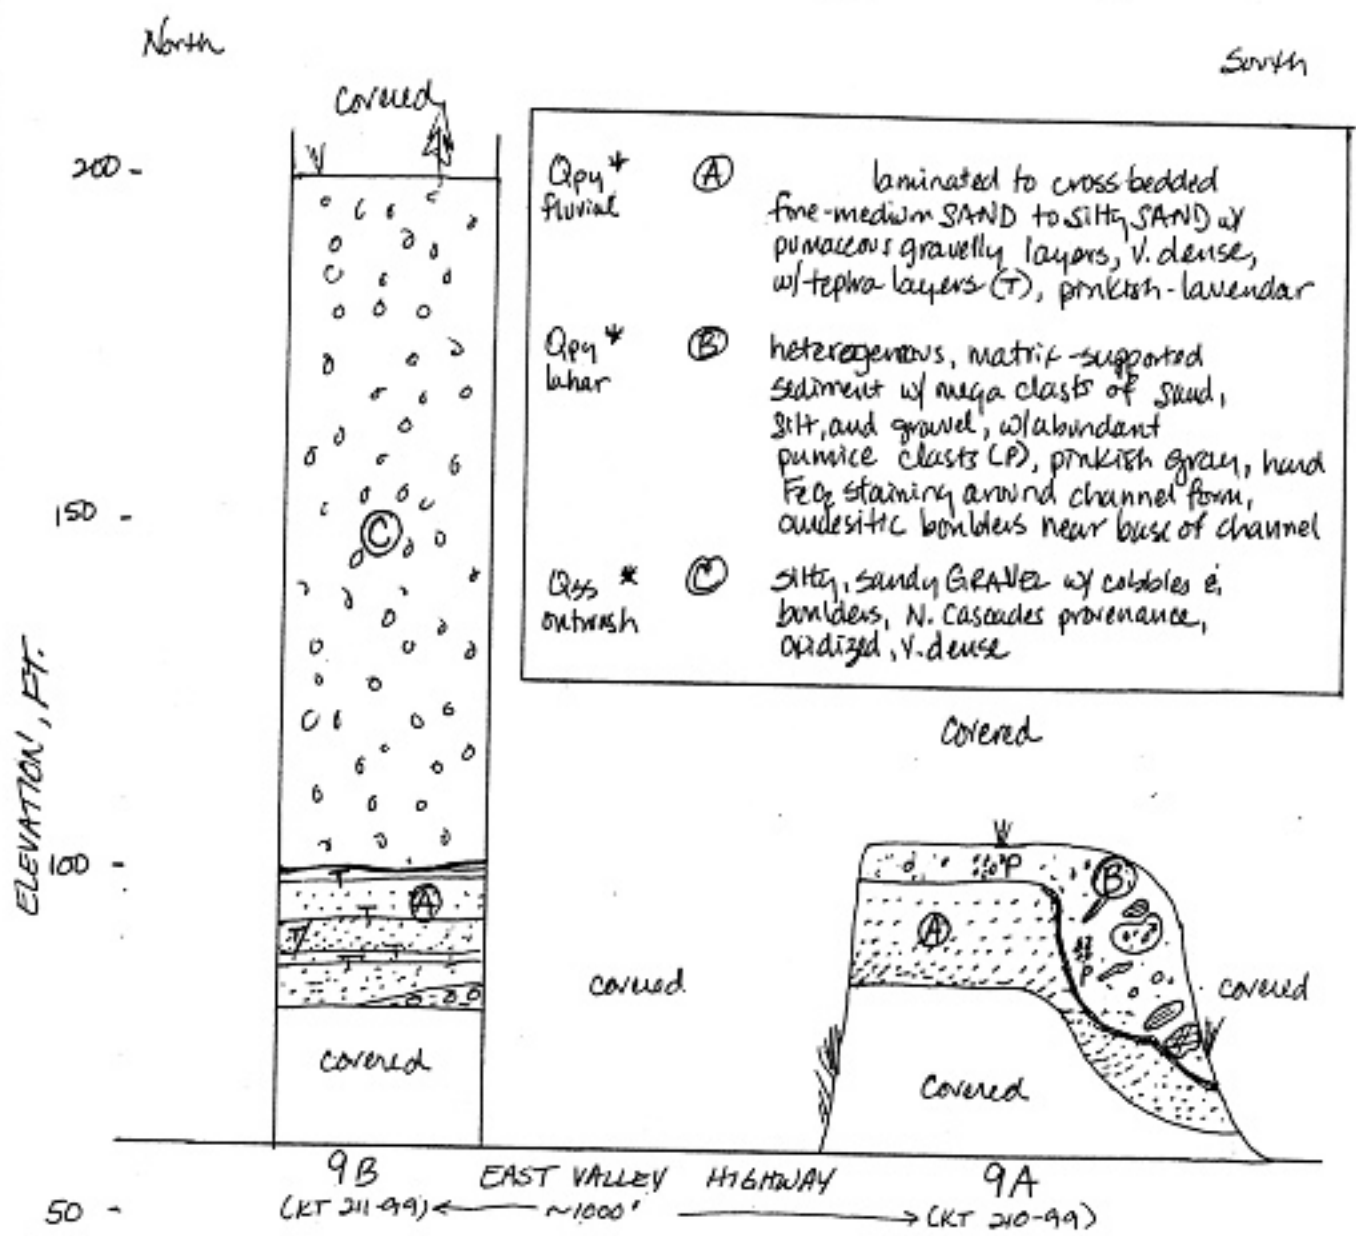 North
South
Covered
200 -
Qpy*
fluvial
(A)
laminated to crossbedded
fine-medium SAND to silty SAND w/
pumaceous gravelly layers, v. dense,
w/tephra layers (T), pinkish-lavendar
Qpy*
lahar
(B)
heterogenous, matrix-supported
sediment w/ mega clasts of sand,
silt, and gravel, w/abundant
pumice clasts (P), pinkish gray, hard
FeO2 staining around channel form,
andesitic boulders near base of channel
Qss*
outwash
(C)
silty, sandy GRAVEL w/ cobbles &
boulders, N. Cascades provenance,
oxidized, v. dense
150 -
C
ELEVATION, FT.
100 -
Covered
T
A
T
T
T
T
P
B
A
P
covered
covered
covered
Covered
9B
EAST VALLEY HIGHWAY
9A
(KT 211-99) ← ~1000' → (KT 210-99)
50 -